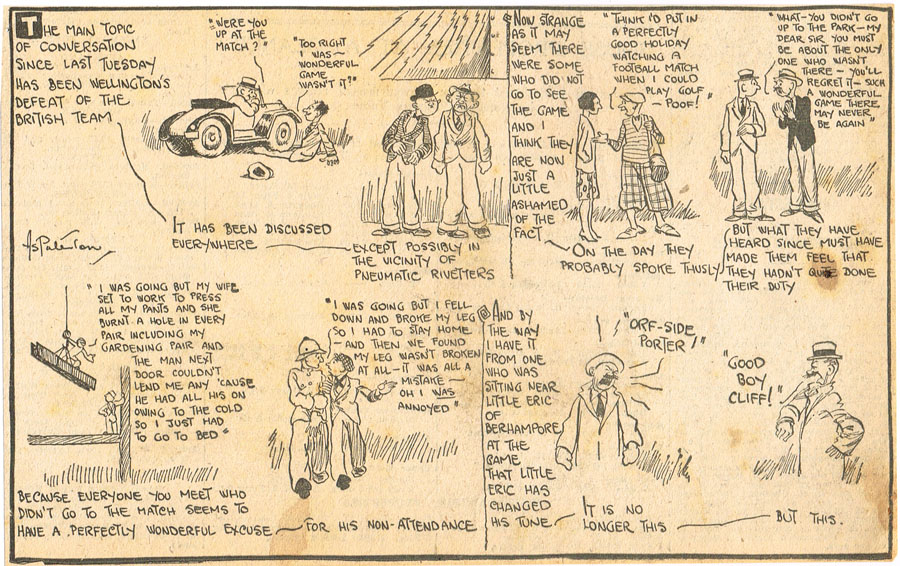 THE MAIN TOPIC
OF CONVERSATION
SINCE LAST TUESDAY
HAS BEEN WELLINGTON'S
DEFEAT OF THE
BRITISH TEAM
"WERE YOU
UP AT THE
MATCH?"
"TOO RIGHT
I WAS—
WONDERFUL
GAME
WASN'T IT?"
IT HAS BEEN DISCUSSED
EVERYWHERE
EXCEPT POSSIBLY IN
THE VICINITY OF
PNEUMATIC RIVETTERS
NOW STRANGE
AS IT MAY
SEEM THERE
WERE SOME
WHO DID NOT
GO TO SEE
THE GAME
AND I
THINK THEY
ARE NOW
JUST A
LITTLE
ASHAMED
OF THE
FACT
"THINK I'D PUT IN
A PERFECTLY
GOOD HOLIDAY
WATCHING A
FOOTBALL MATCH
WHEN I COULD
PLAY GOLF
— POOF!"
ON THE DAY THEY
PROBABLY SPOKE THUSLY
"WHAT—YOU DIDN'T GO
UP TO THE PARK—MY
DEAR SIR YOU MUST
BE ABOUT THE ONLY
ONE WHO WASN'T
THERE — YOU'LL
REGRET IT—SUCH
A WONDERFUL
GAME THERE
MAY NEVER
BE AGAIN"
BUT WHAT THEY HAVE
HEARD SINCE MUST HAVE
MADE THEM FEEL THAT
THEY HADN'T QUITE DONE
THEIR DUTY
"I WAS GOING BUT MY WIFE
SET TO WORK TO PRESS
ALL MY PANTS AND SHE
BURNT A HOLE IN EVERY
PAIR INCLUDING MY
GARDENING PAIR AND
THE MAN NEXT
DOOR COULDN'T
LEND ME ANY 'CAUSE
HE HAD ALL HIS ON
OWING TO THE COLD
SO I JUST HAD
TO GO TO BED"
BECAUSE EVERYONE YOU MEET WHO
DIDN'T GO TO THE MATCH SEEMS TO
HAVE A PERFECTLY WONDERFUL EXCUSE
"I WAS GOING BUT I FELL
DOWN AND BROKE MY LEG
SO I HAD TO STAY HOME
—AND THEN WE FOUND
MY LEG WASN'T BROKEN
AT ALL—IT WAS ALL A
MISTAKE—
OH I WAS
ANNOYED"
FOR HIS NON-ATTENDANCE
AND BY
THE WAY
I HAVE IT
FROM ONE
WHO WAS
SITTING NEAR
LITTLE ERIC
OF
BERHAMPORE
AT THE
GAME
THAT LITTLE
ERIC HAS
CHANGED
HIS TUNE
"ORF-SIDE
PORTER!"
IT IS NO
LONGER THIS
"GOOD
BOY
CLIFF!"
BUT THIS.